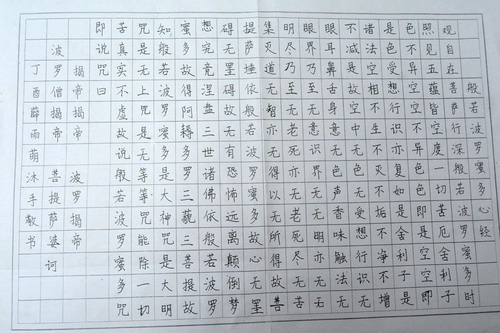 般若波罗蜜多心经
观自在菩萨行深般若波罗蜜多时
照见五蕴皆空度一切苦厄舍利子
色不异空空不异色色即是空空即
是色受想行识亦复如是舍利子是
诸法空相不生不灭不垢不净不增
不减是故空中无色无受想行识无
眼耳鼻舌身意无色声香味触法无
眼界乃至无意识界无无明亦无无
明尽乃至无老死亦无老死尽无苦
集灭道无智亦无得以无所得故菩
提萨埵依般若波罗蜜多故心无罣
碍无罣碍故无有恐怖远离颠倒梦
想究竟涅盘三世诸佛依般若波罗
蜜多故得阿耨多罗三藐三菩提故
知般若波罗蜜多是大神咒是大明
咒是无上咒是无等等咒能除一切
苦真实不虚故说般若波罗蜜多咒
即说咒曰
揭帝揭帝 波罗揭帝
波罗僧揭帝 菩提萨婆诃
丁酉薛雨萌沐手敬书